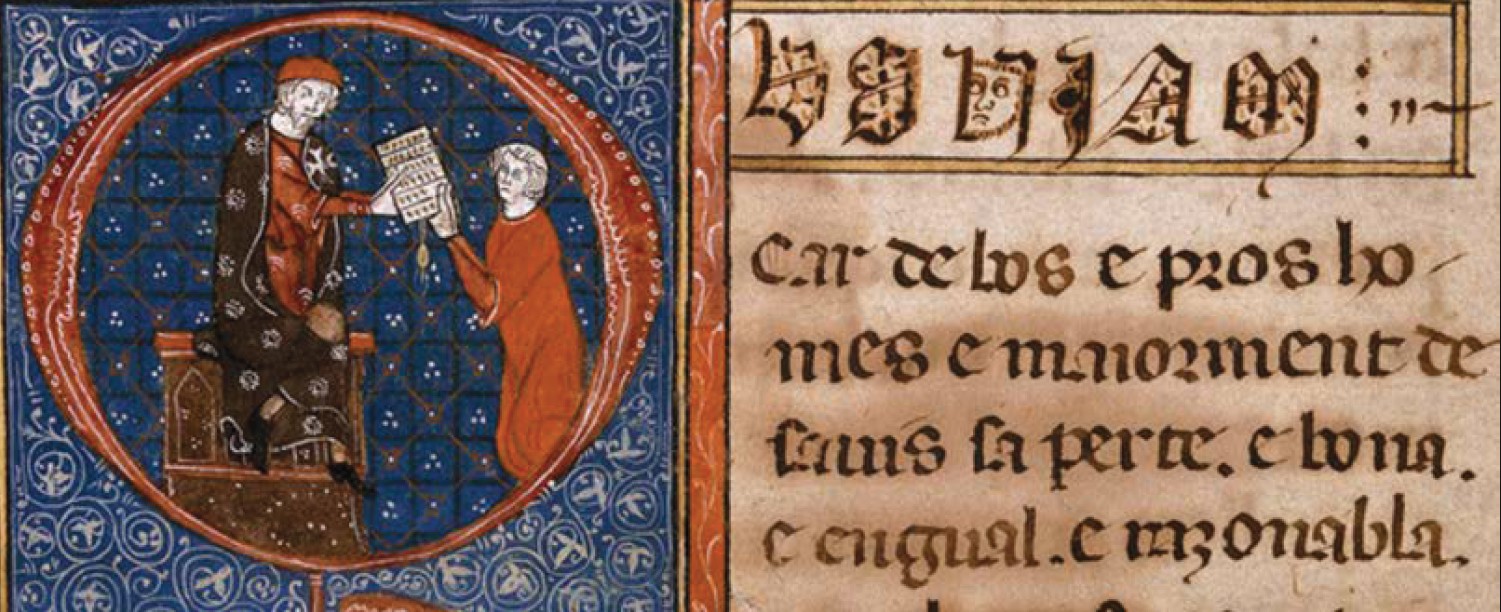 QVONIAM :
Car de bos e pros ho-
mes e maiorment de
sauis sa perte. e bona.
e engual. e razonabla.